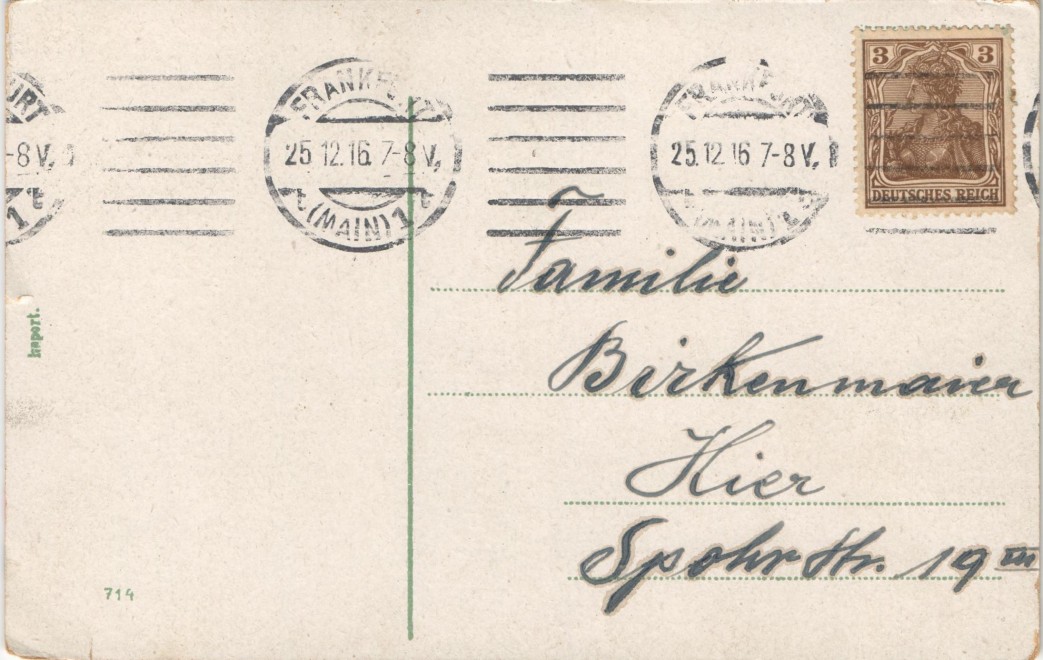 URT
-8 V.
1 t
FRANKFURT
25.12.16. 7-8 V.
t (MAIN) 1 t
FRANKFURT
25.12.16 7-8 V.
t (MAIN) 1
3 3
DEUTSCHES REICH
Familie
Birkenmaier
Hier
Spohrstr. 19 III
Import.
714